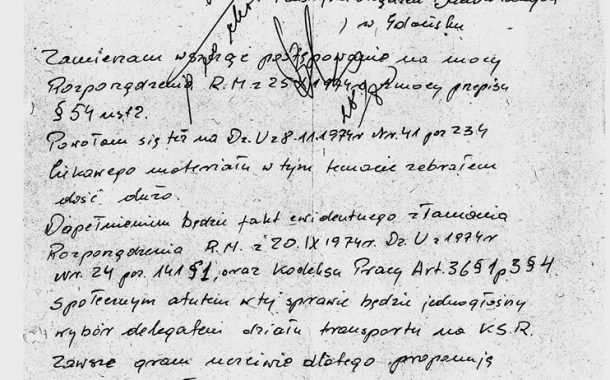 ) w Gdańsku
Zamierzam wszcząć postępowanie na mocy
Rozporządzenia R.M. z 25 1974 z mocy przepisu
§ 54 ust 2.
Powołam się też na Dz.U z 8.11.1974r Nr. 41 poz 234
Ciekawego materiału w tym temacie zebrałem
dość dużo.
Dopełnieniem będzie fakt ewidentnego złamania
Rozporządzenia R.M. z 20.IX 1974r. Dz.U z 1974r
Nr. 24 poz. 141 § 1, oraz Kodeksu Pracy Art. 36 § 1 p 3 § 4
Społecznym atutem w tej sprawie będzie jednogłośny
wybór delegatem działu transportu na K.S.R.
Zawsze gram uczciwie dlatego proponuję